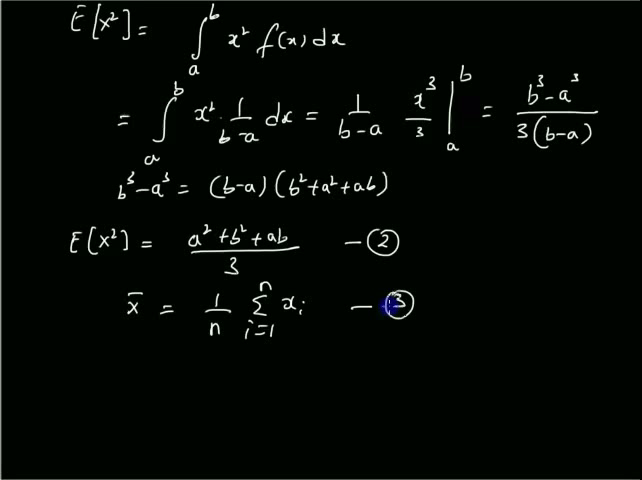 E[x²] = ∫ₐᵇ x² f(x) dx
= ∫ₐᵇ x² · 1/(b-a) dx = 1/(b-a) x³/3 |ₐᵇ = (b³-a³)/(3(b-a))
b³-a³ = (b-a)(b²+a²+ab)
E[x²] = (a²+b²+ab)/3 — ②
x̄ = 1/n ∑ᵢ₌₁ⁿ xᵢ — ③